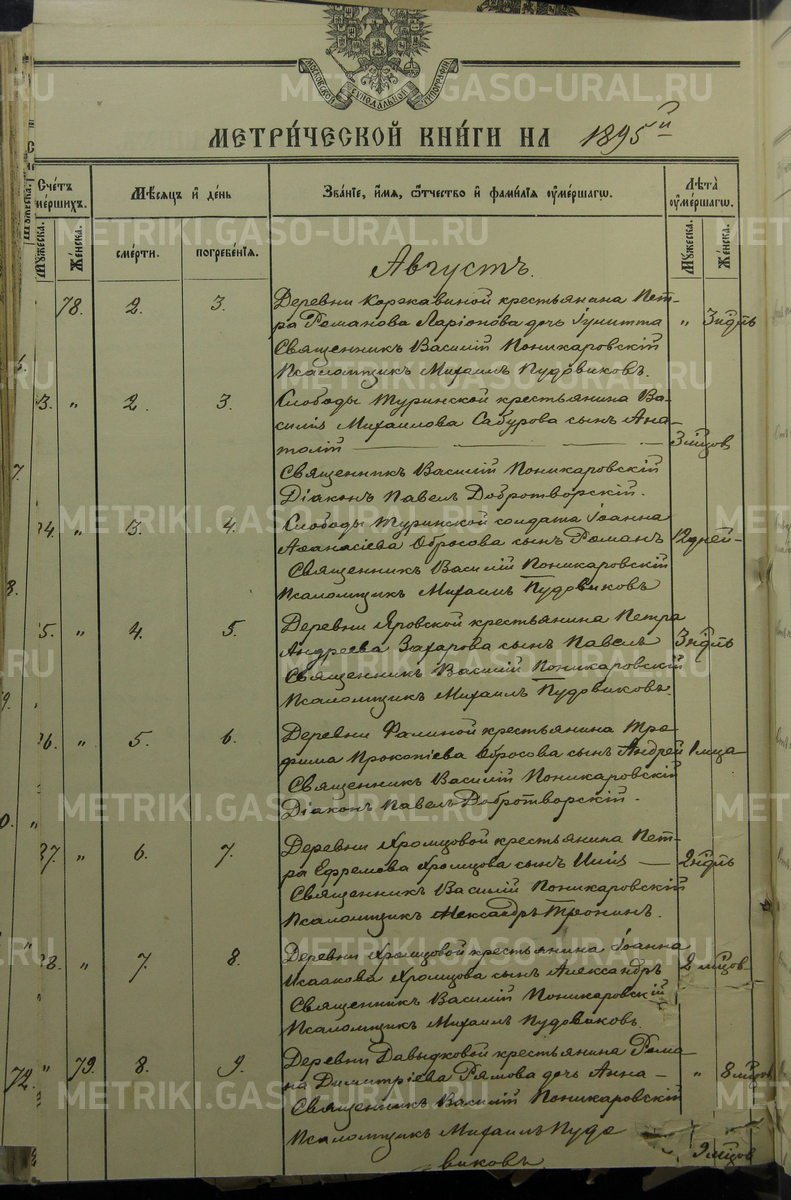 МОСКОВСКОЙ СѴНОДАЛЬНОЙ ТИПОГРАФІИ
МЕТРИ́ЧЕСКОЙ КНИ́ГИ НА 1895й
Счéтъ ᲂумéршихъ.
Мѣ́сяцъ и҆ де́нь
Зва́нїе, и҆́мя, ѻ҆́тчество и҆ фами́лїя ᲂу҆ме́ршагѡ.
Лѣ́та ᲂу҆ме́ршагѡ.
Мꙋ́жеска.
Же́нска.
сме́рти.
погребе́нїя.
Мꙋ́жеска.
Же́нска.
Августъ.
78. 2. 3. Деревни Коржавиной крестьянина Пет-
ра Романова Ларіонова дочь Іулитта „ 3 нѣдль
Священникъ Василій Поникаровскій
Псаломщикъ Михаилъ Пудовиковъ.
3. „ 2. 3. Слободы Туринской крестьянина Ва-
силія Михаилова Сабурова сынъ Ана-
толій 3 мѣсцов
Священникъ Василій Поникаровскій
Діаконъ Павелъ Добротворскій.
4. „ 3. 4. Слободы Туринской солдата Іоанна
Аѳанасіева Обросова сынъ Романъ 12 дней
Священникъ Василій Поникаровскій
Псаломщикъ Михаилъ Пудовиковъ
5. „ 4. 5. Деревни Яровской крестьянина Петра
Андреева Захарова сынъ Павелъ 3 нѣдль
Священникъ Василій Поникаровскій
Псаломщикъ Михаилъ Пудовиковъ.
6. „ 5. 6. Деревни Фалиной крестьянина Тро-
фима Прокопіева Обросова сынъ Андрей 1 мца
Священникъ Василій Поникаровскій
Діаконъ Павелъ Добротворскій.
37. „ 6. 7. Деревни Хромцовой крестьянина Пет-
ра Ефремова Хромцова сынъ Илія 2 нѣдль
Священникъ Василій Поникаровскій
Псаломщикъ Александръ Тронинъ.
8. „ 7. 8. Деревни Хромцовой крестьянина Іоанна
Исаакова Хромцова сынъ Александръ 2 мѣсцов
Священникъ Василій Поникаровскій
Псаломщикъ Михаилъ Пудовиковъ.
72. „ 79. 8. 9. Деревни Давыдковой крестьянина Рома-
на Димитріева Рямова дочь Анна „ 8 мѣсцов
Священникъ Василій Поникаровскій
Псаломщикъ Михаилъ Пудо
виковъ
9 мѣсцов
METRIKI.GASO-URAL.RU